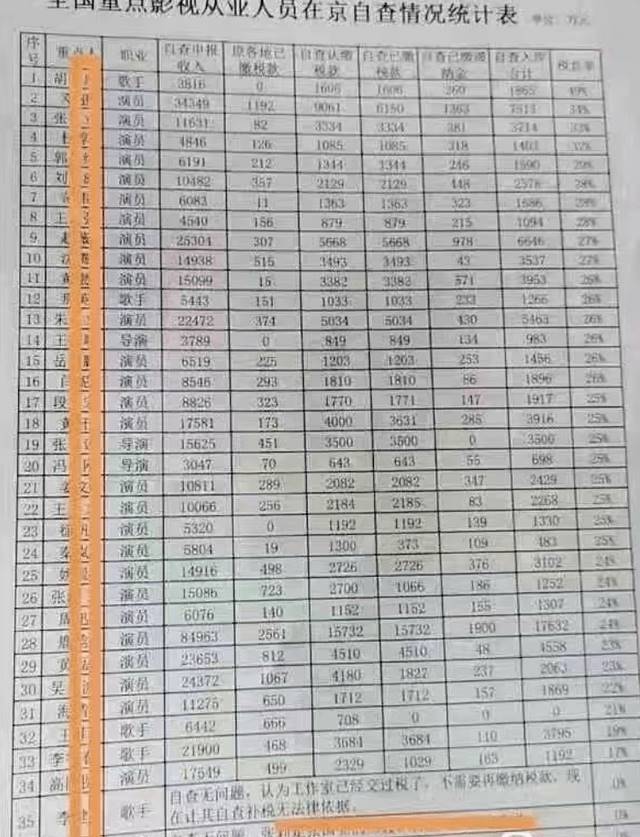 全国重点影视从业人员在京自查情况统计表 单位：万元
序号 重点人 职业 自查申报收入 原各地已缴税款 自查认缴税款 自查已缴税款 自查已缴滞纳金 自查入库合计 税款率
1 胡 歌手 3816 0 1606 1606 260 1865 49%
2 演员 34349 1192 9061 6150 1363 7513 34%
3 张 演员 11631 82 3334 3334 381 3714 33%
4 杜 演员 4846 126 1085 1085 318 1403 32%
5 郭 演员 6191 212 1344 1344 246 1590 29%
6 刘 演员 10482 357 2129 2129 448 2578 28%
7 演员 6083 11 1363 1363 323 1686 28%
8 王 演员 4540 156 879 879 215 1094 28%
9 赵 演员 25304 307 5668 5668 978 6646 27%
10 演员 14938 515 3493 3493 43 3537 27%
11 演员 15099 15 3382 3382 571 3953 26%
12 歌手 5443 151 1033 1033 233 1266 26%
13 朱 演员 22472 374 5034 5034 430 5463 26%
14 王 导演 3789 0 849 849 134 983 26%
15 岳 演员 6519 225 1203 1203 253 1456 26%
16 演员 8546 293 1810 1810 86 1896 26%
17 段 演员 8826 323 1770 1771 147 1917 25%
18 黄 演员 17581 173 4000 3631 285 3916 25%
19 张 导演 15625 451 3500 3500 0 3500 25%
20 冯 导演 3047 70 643 643 55 698 25%
21 姜文 演员 10811 289 2082 2082 347 2429 25%
22 王 演员 10066 256 2184 2185 83 2268 25%
23 演员 5320 0 1192 1192 139 1330 25%
24 秦 演员 5804 19 1300 373 109 483 25%
25 姚 演员 14916 498 2726 2726 376 3102 24%
26 张 演员 15086 723 2700 1066 186 1252 24%
27 周 演员 6076 140 1152 1152 155 1307 24%
28 演员 84963 2561 15732 15732 1900 17632 24%
29 黄 演员 23653 812 4510 4510 48 4558 23%
30 吴 演员 24372 1067 4180 1827 237 2063 23%
31 演员 11275 650 1712 1712 157 1869 22%
32 王 歌手 6442 666 708 0 0 0 21%
33 李 歌手 21900 468 3684 3684 110 3795 19%
34 高 演员 17549 499 2329 1029 163 1192 17%
35 李 歌手 自查无问题，认为工作室已经交过税了，不需要再缴纳税款，现 0%
在让其自查补税无法律依据。
自查无问题， 0%